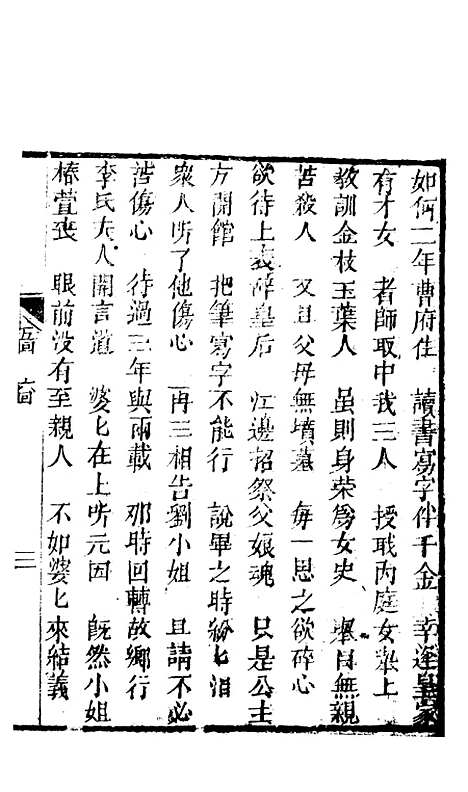 如何二年曹府住　讀書寫字伴千金　幸逢皇家
有才女　者師取中我三人　授职內庭女衆上
教訓金枝玉葉人　虽則身荣爲女史　舉目無親
苦殺人　又且父母無墳墓　每一思之欲碎心
欲待上表辞皇后　江邊招祭父娘魂　只是公主
方開館　把筆寫字不能行　說畢之時紛匕泪
衆人听了他傷心　再三相告劉小姐　且請不必
苦傷心　待過三年與兩載　那時回轉故鄉行
李氏夫人開言道　婆匕在上听元因　既然小姐
椿萱喪　眼前没有至親人　不如婆匕來結義
三